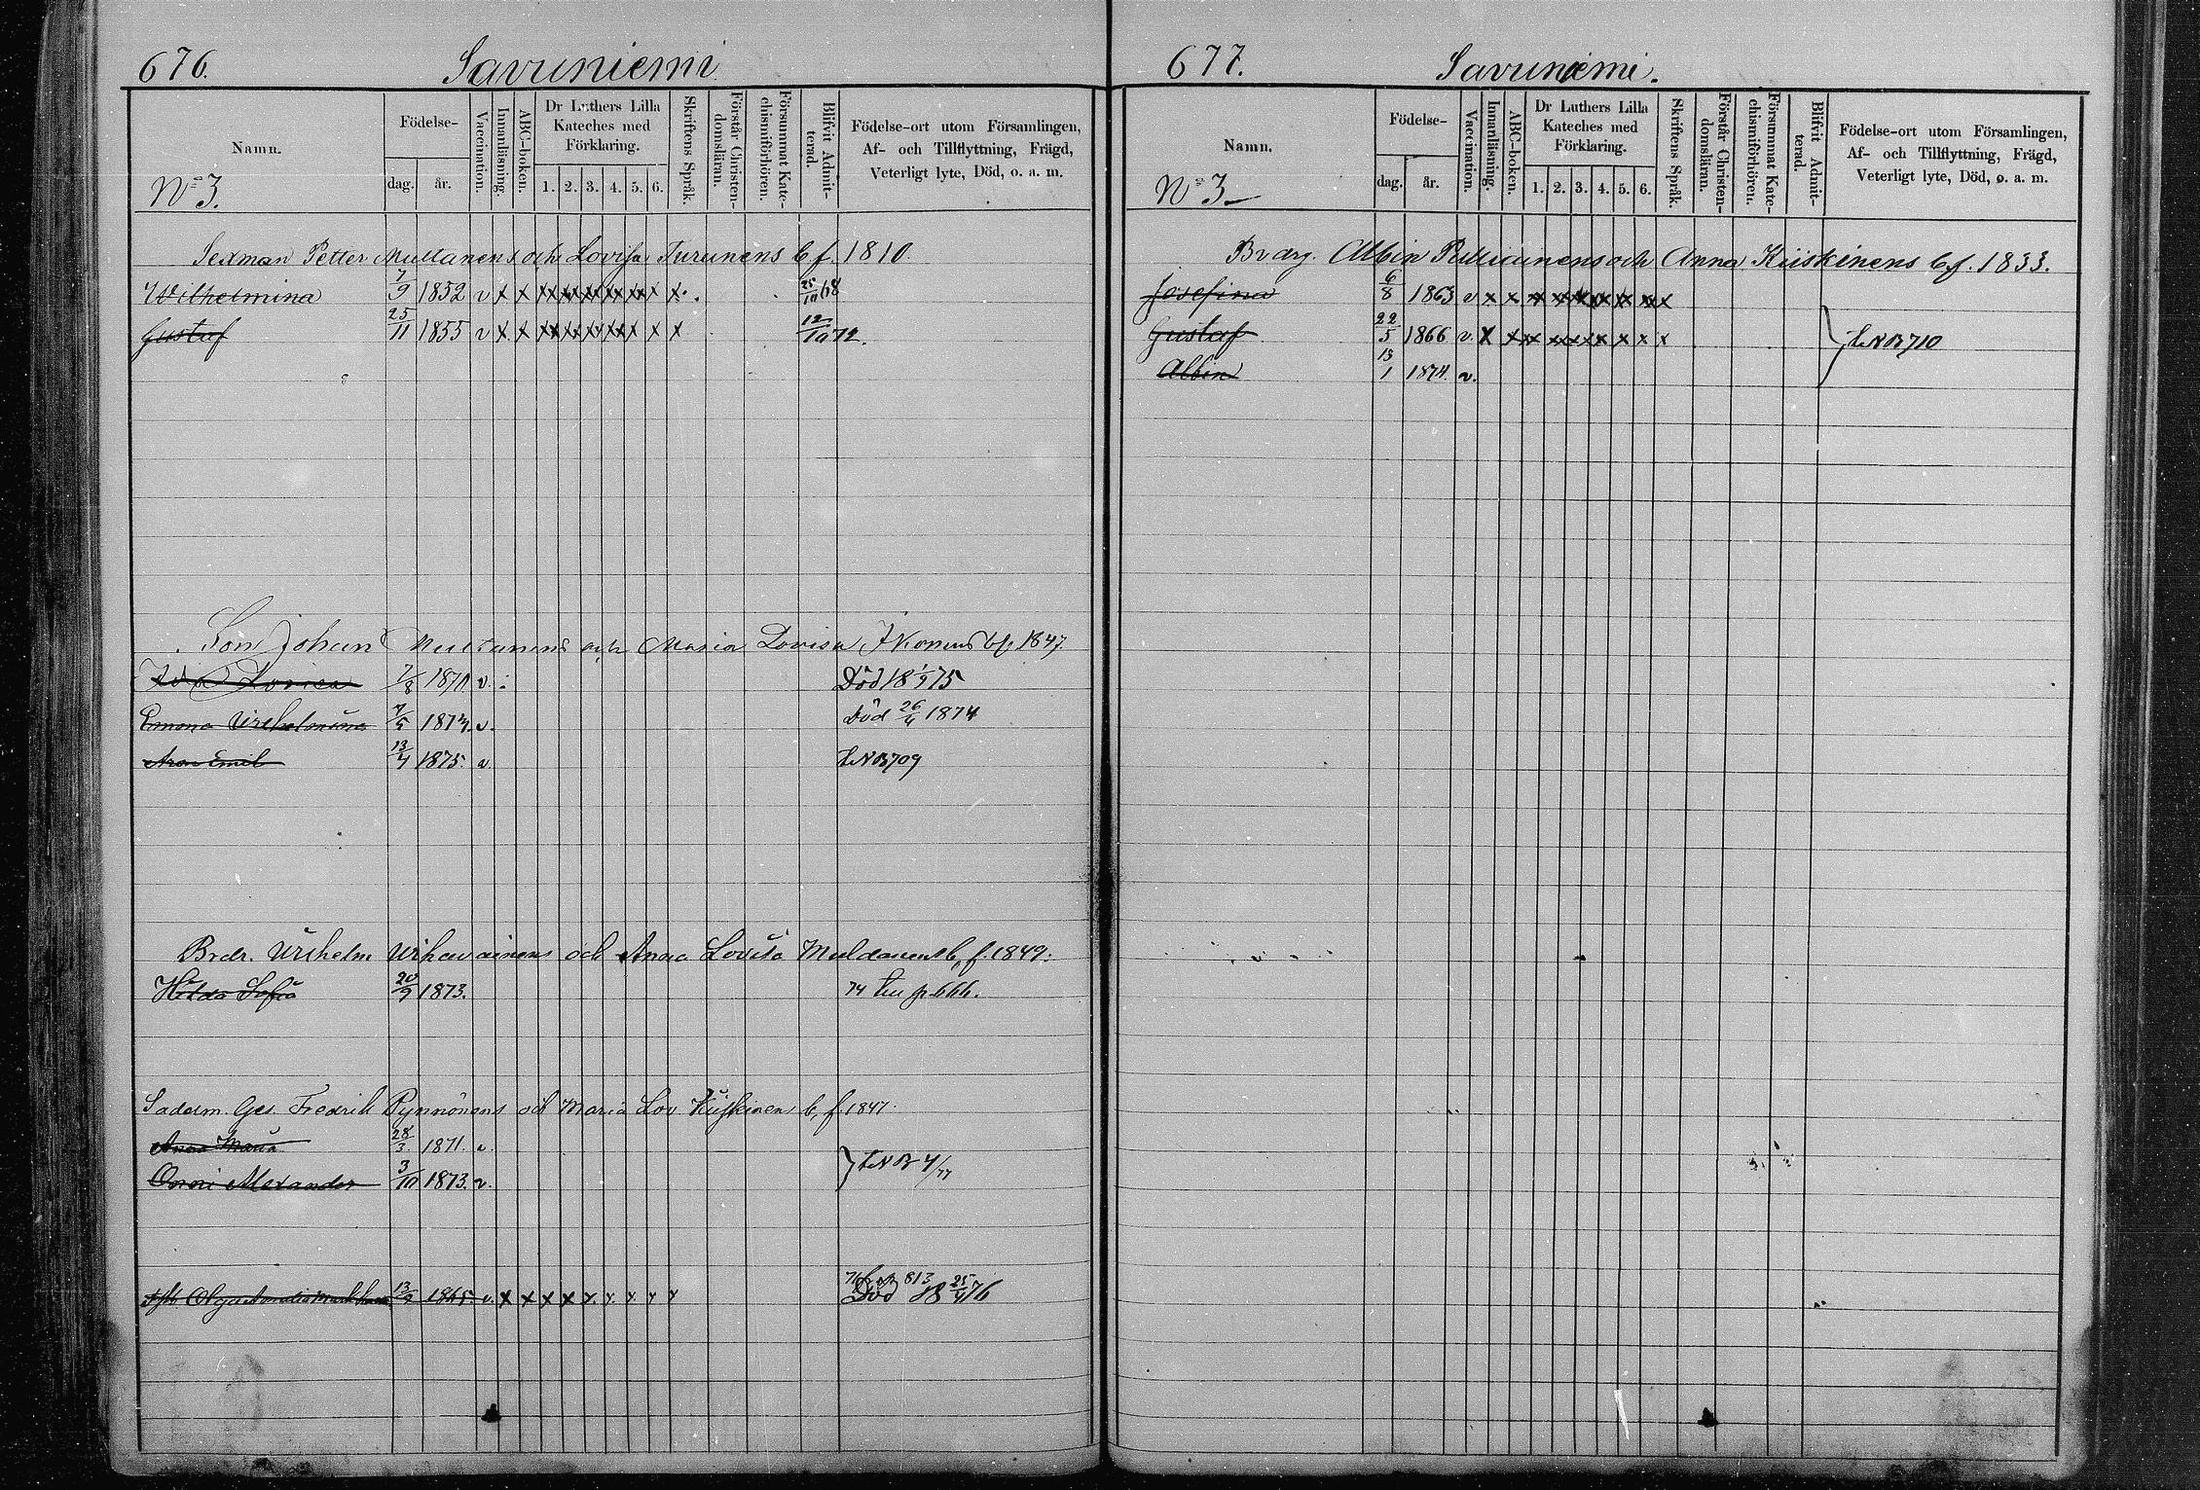 676.
Savuniemi
Namn.
Födelse-
dag.
år.
Vaccination.
Innanläsning.
ABC-boken.
Dr Luthers Lilla
Kateches med
Förklaring.
1. 2. 3. 4. 5. 6.
Skriftens Språk.
Förstår Christen-
domsläran.
Försummat Kate-
chismiförhören.
Blifvit Admit-
terad.
Födelse-ort utom Församlingen,
Af- och Tillflyttning, Frägd,
Veterligt lyte, Död, o. a. m.
No 3.
Sexman Petter Multanens och Lovisa Turunens b f. 1810.
Wilhelmina 7/9 1852 v x x 25/10 68
Gustaf 25/11 1855 v x x 12/10 72.
Son Johan Multanens och Maria Lovisa Ikonens bf. 1847.
Ida Lovisa 7/8 1870 v. Död 18 1/9 75
Emma Wilhelmina 7/5 1873. v. Död 26/4 1874
Aron Emil 13/4 1875. v. L N B 709
Brdr. Wilhelm Wihavainens och Anna Lovisa Muldanens b, f. 1849.
Hilda Sofia 20/9 1873. 74 p. 666.
Fredrik Pynnönens och Maria Lov Kiiskinens b, f. 1847.
Anna Maria 28/3 1871. v.
Alexander 3/10 1873. v.
L N B 4/77
Olga 13/3 1865. v. x x x x
813
Död 18 25/9 76
677.
Savuniemi.
Namn.
Födelse-
dag.
år.
Vaccination.
Innanläsning.
ABC-boken.
Dr Luthers Lilla
Kateches med
Förklaring.
1. 2. 3. 4. 5. 6.
Skriftens Språk.
Förstår Christen-
domsläran.
Försummat Kate-
chismiförhören.
Blifvit Admit-
terad.
Födelse-ort utom Församlingen,
Af- och Tillflyttning, Frägd,
Veterligt lyte, Död, o. a. m.
No 3
Albin och Anna Kiiskinens b, f. 1833.
Josefina 6/8 1863 v x x
Gustaf 22/5 1866 v. x x
L N B 710
Albin 13/1 1874. v.